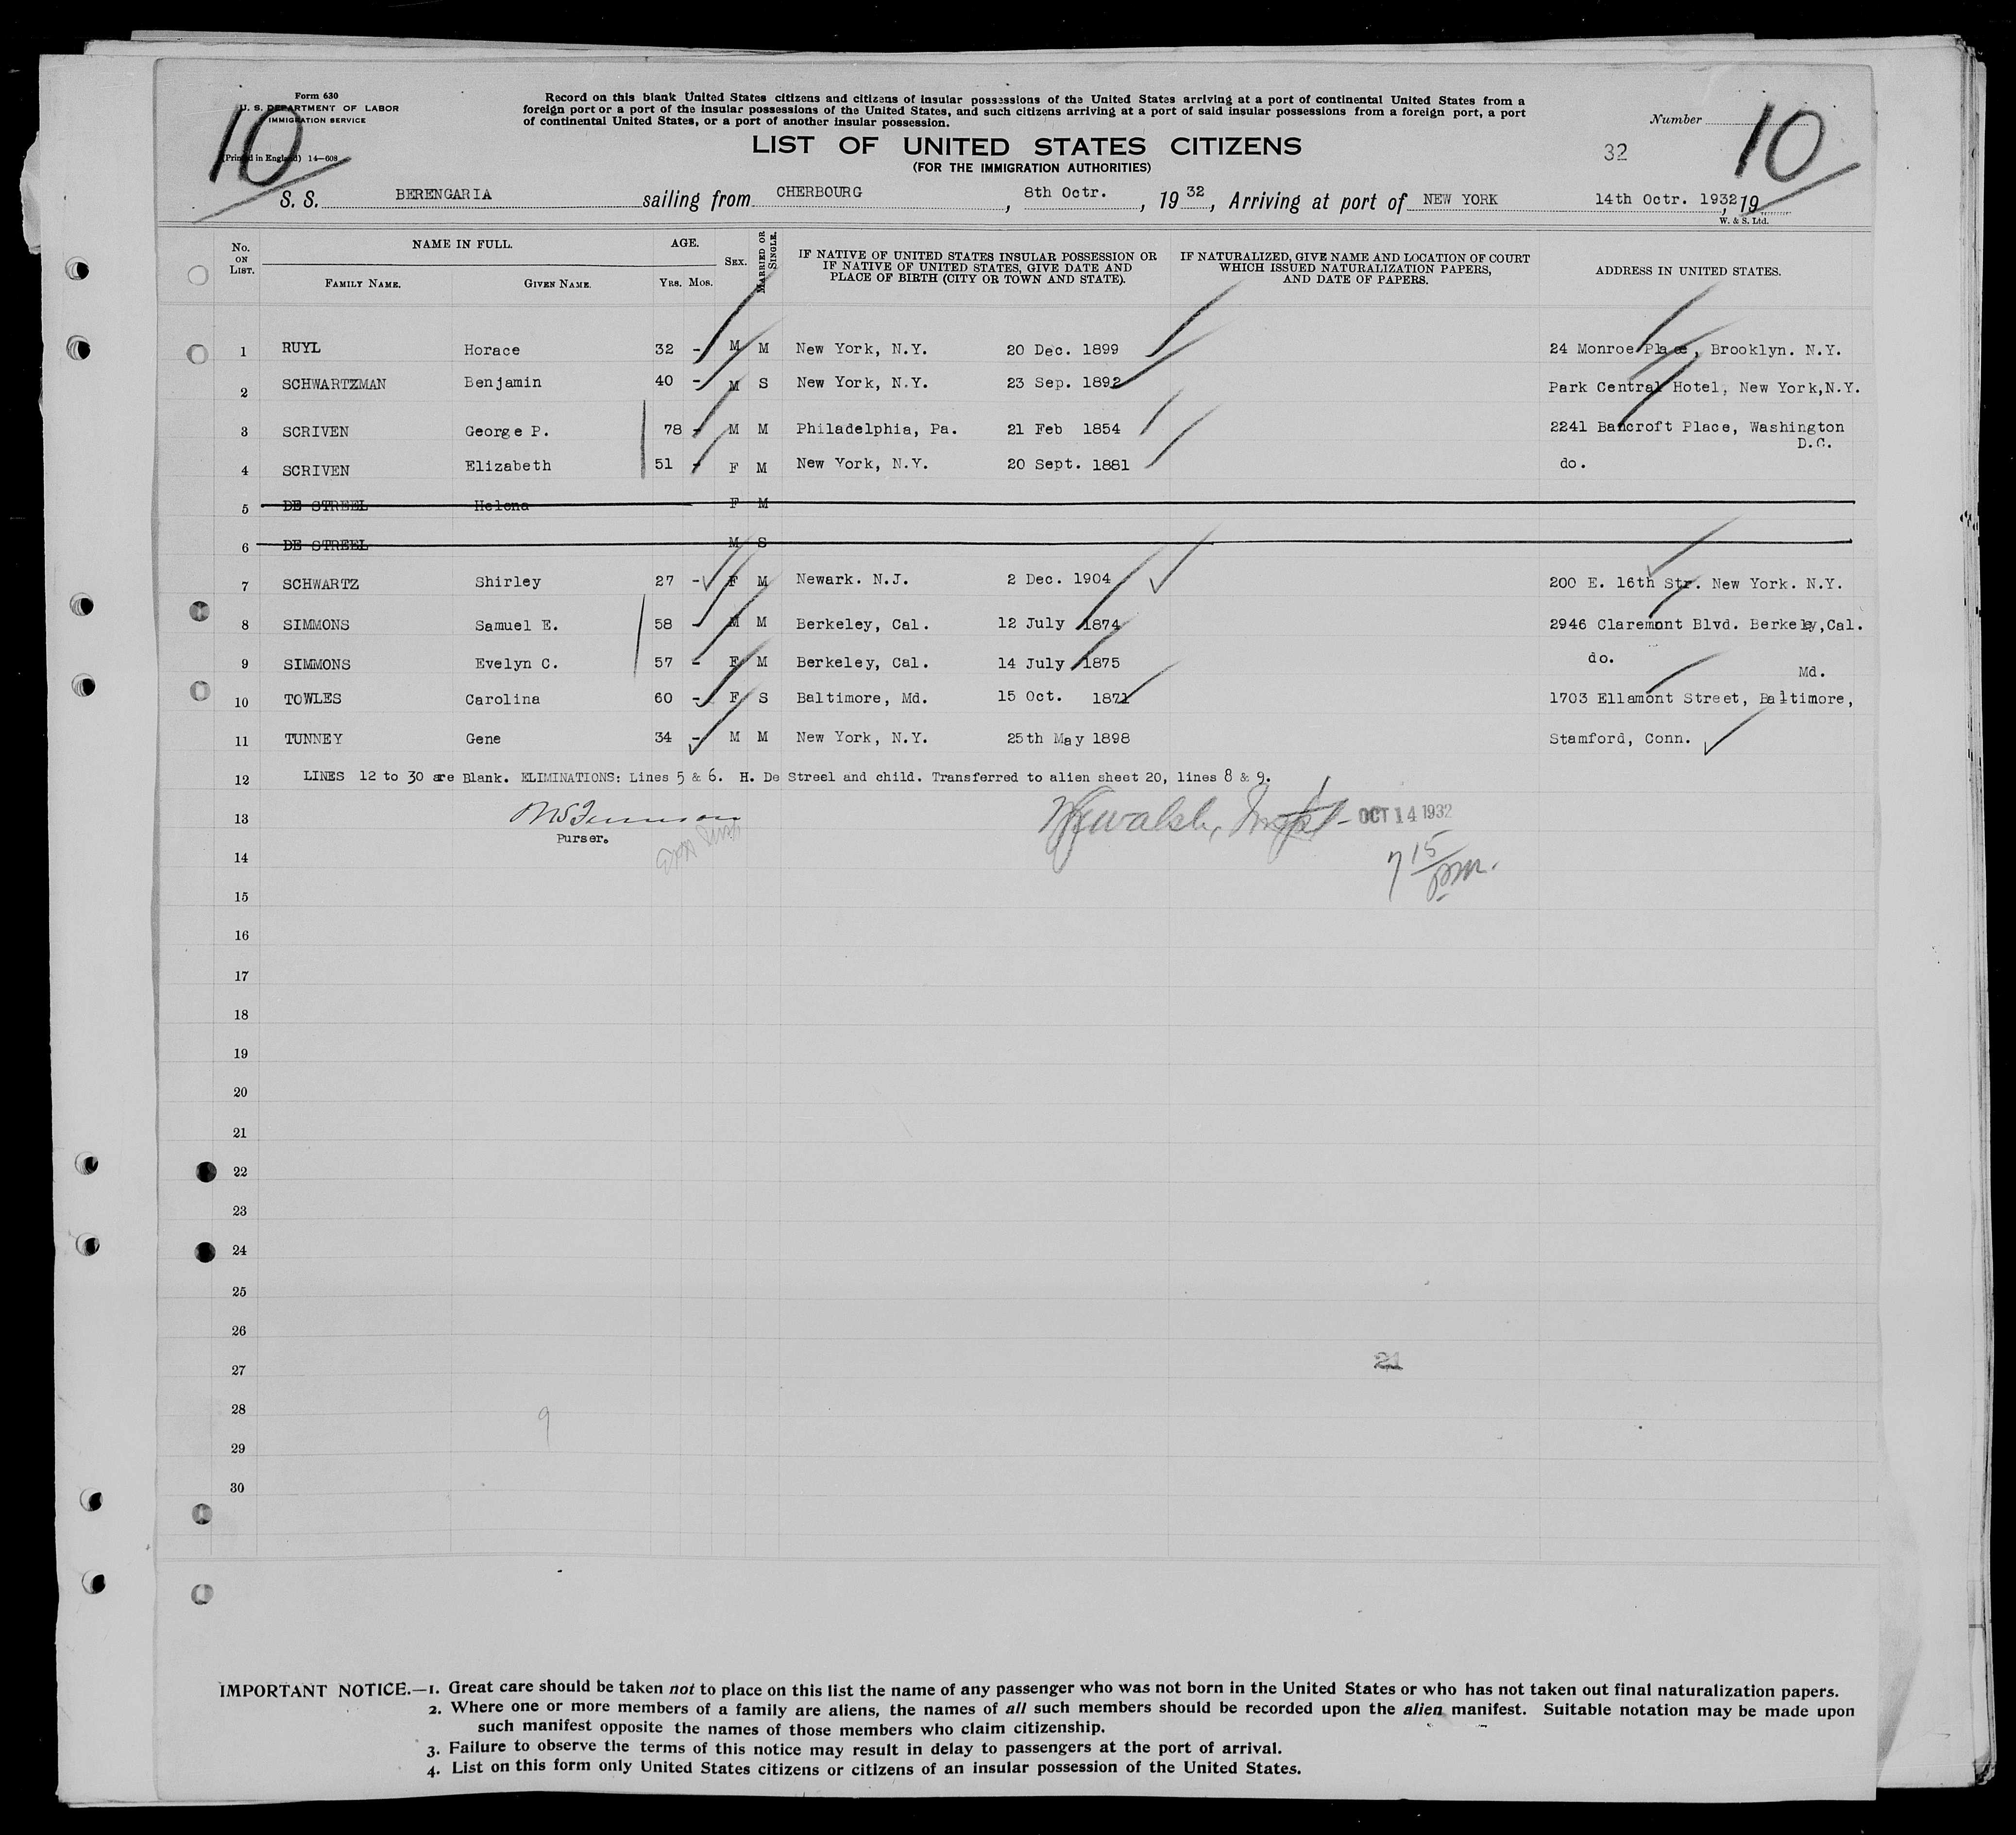 Form 630
U. S. DEPARTMENT OF LABOR
IMMIGRATION SERVICE
(Printed in England) 14—608
10
Record on this blank United States citizens and citizens of insular possessions of the United States arriving at a port of continental United States from a
foreign port or a port of the insular possessions of the United States, and such citizens arriving at a port of said insular possessions from a foreign port, a port
of continental United States, or a port of another insular possession.
LIST OF UNITED STATES CITIZENS
(FOR THE IMMIGRATION AUTHORITIES)
Number
32
10
S. S. BERENGARIA sailing from CHERBOURG, 8th Octr., 19 32, Arriving at port of NEW YORK 14th Octr. 1932, 19
W. & S. Ltd.
No. ON LIST. NAME IN FULL. AGE. SEX. MARRIED OR SINGLE. IF NATIVE OF UNITED STATES INSULAR POSSESSION OR IF NATIVE OF UNITED STATES, GIVE DATE AND PLACE OF BIRTH (CITY OR TOWN AND STATE). IF NATURALIZED, GIVE NAME AND LOCATION OF COURT WHICH ISSUED NATURALIZATION PAPERS, AND DATE OF PAPERS. ADDRESS IN UNITED STATES.
FAMILY NAME. GIVEN NAME. YRS. MOS.
1 RUYL Horace 32 - M M New York, N.Y. 20 Dec. 1899 24 Monroe Place, Brooklyn. N.Y.
2 SCHWARTZMAN Benjamin 40 - M S New York, N.Y. 23 Sep. 1892 Park Central Hotel, New York,N.Y.
3 SCRIVEN George P. 78 - M M Philadelphia, Pa. 21 Feb 1854 2241 Bancroft Place, Washington
D.C.
4 SCRIVEN Elizabeth 51 - F M New York, N.Y. 20 Sept. 1881 do.
5 DE STREEL Helena F M
6 DE STREEL M S
7 SCHWARTZ Shirley 27 - F M Newark. N.J. 2 Dec. 1904 200 E. 16th Str. New York. N.Y.
8 SIMMONS Samuel E. 58 - M M Berkeley, Cal. 12 July 1874 2946 Claremont Blvd. Berkeley,Cal.
9 SIMMONS Evelyn C. 57 - F M Berkeley, Cal. 14 July 1875 do.
Md.
10 TOWLES Carolina 60 - F S Baltimore, Md. 15 Oct. 1871 1703 Ellamont Street, Baltimore,
11 TUNNEY Gene 34 - M M New York, N.Y. 25th May 1898 Stamford, Conn.
12 LINES 12 to 30 are Blank. ELIMINATIONS: Lines 5 & 6. H. De Streel and child. Transferred to alien sheet 20, lines 8 & 9.
13 Walsh, OCT 14 1932
Purser.
7 15 pm.
14
15
16
17
18
19
20
21
22
23
24
25
26
27 21
28 9
29
30
IMPORTANT NOTICE.—1. Great care should be taken not to place on this list the name of any passenger who was not born in the United States or who has not taken out final naturalization papers.
2. Where one or more members of a family are aliens, the names of all such members should be recorded upon the alien manifest. Suitable notation may be made upon
such manifest opposite the names of those members who claim citizenship.
3. Failure to observe the terms of this notice may result in delay to passengers at the port of arrival.
4. List on this form only United States citizens or citizens of an insular possession of the United States.